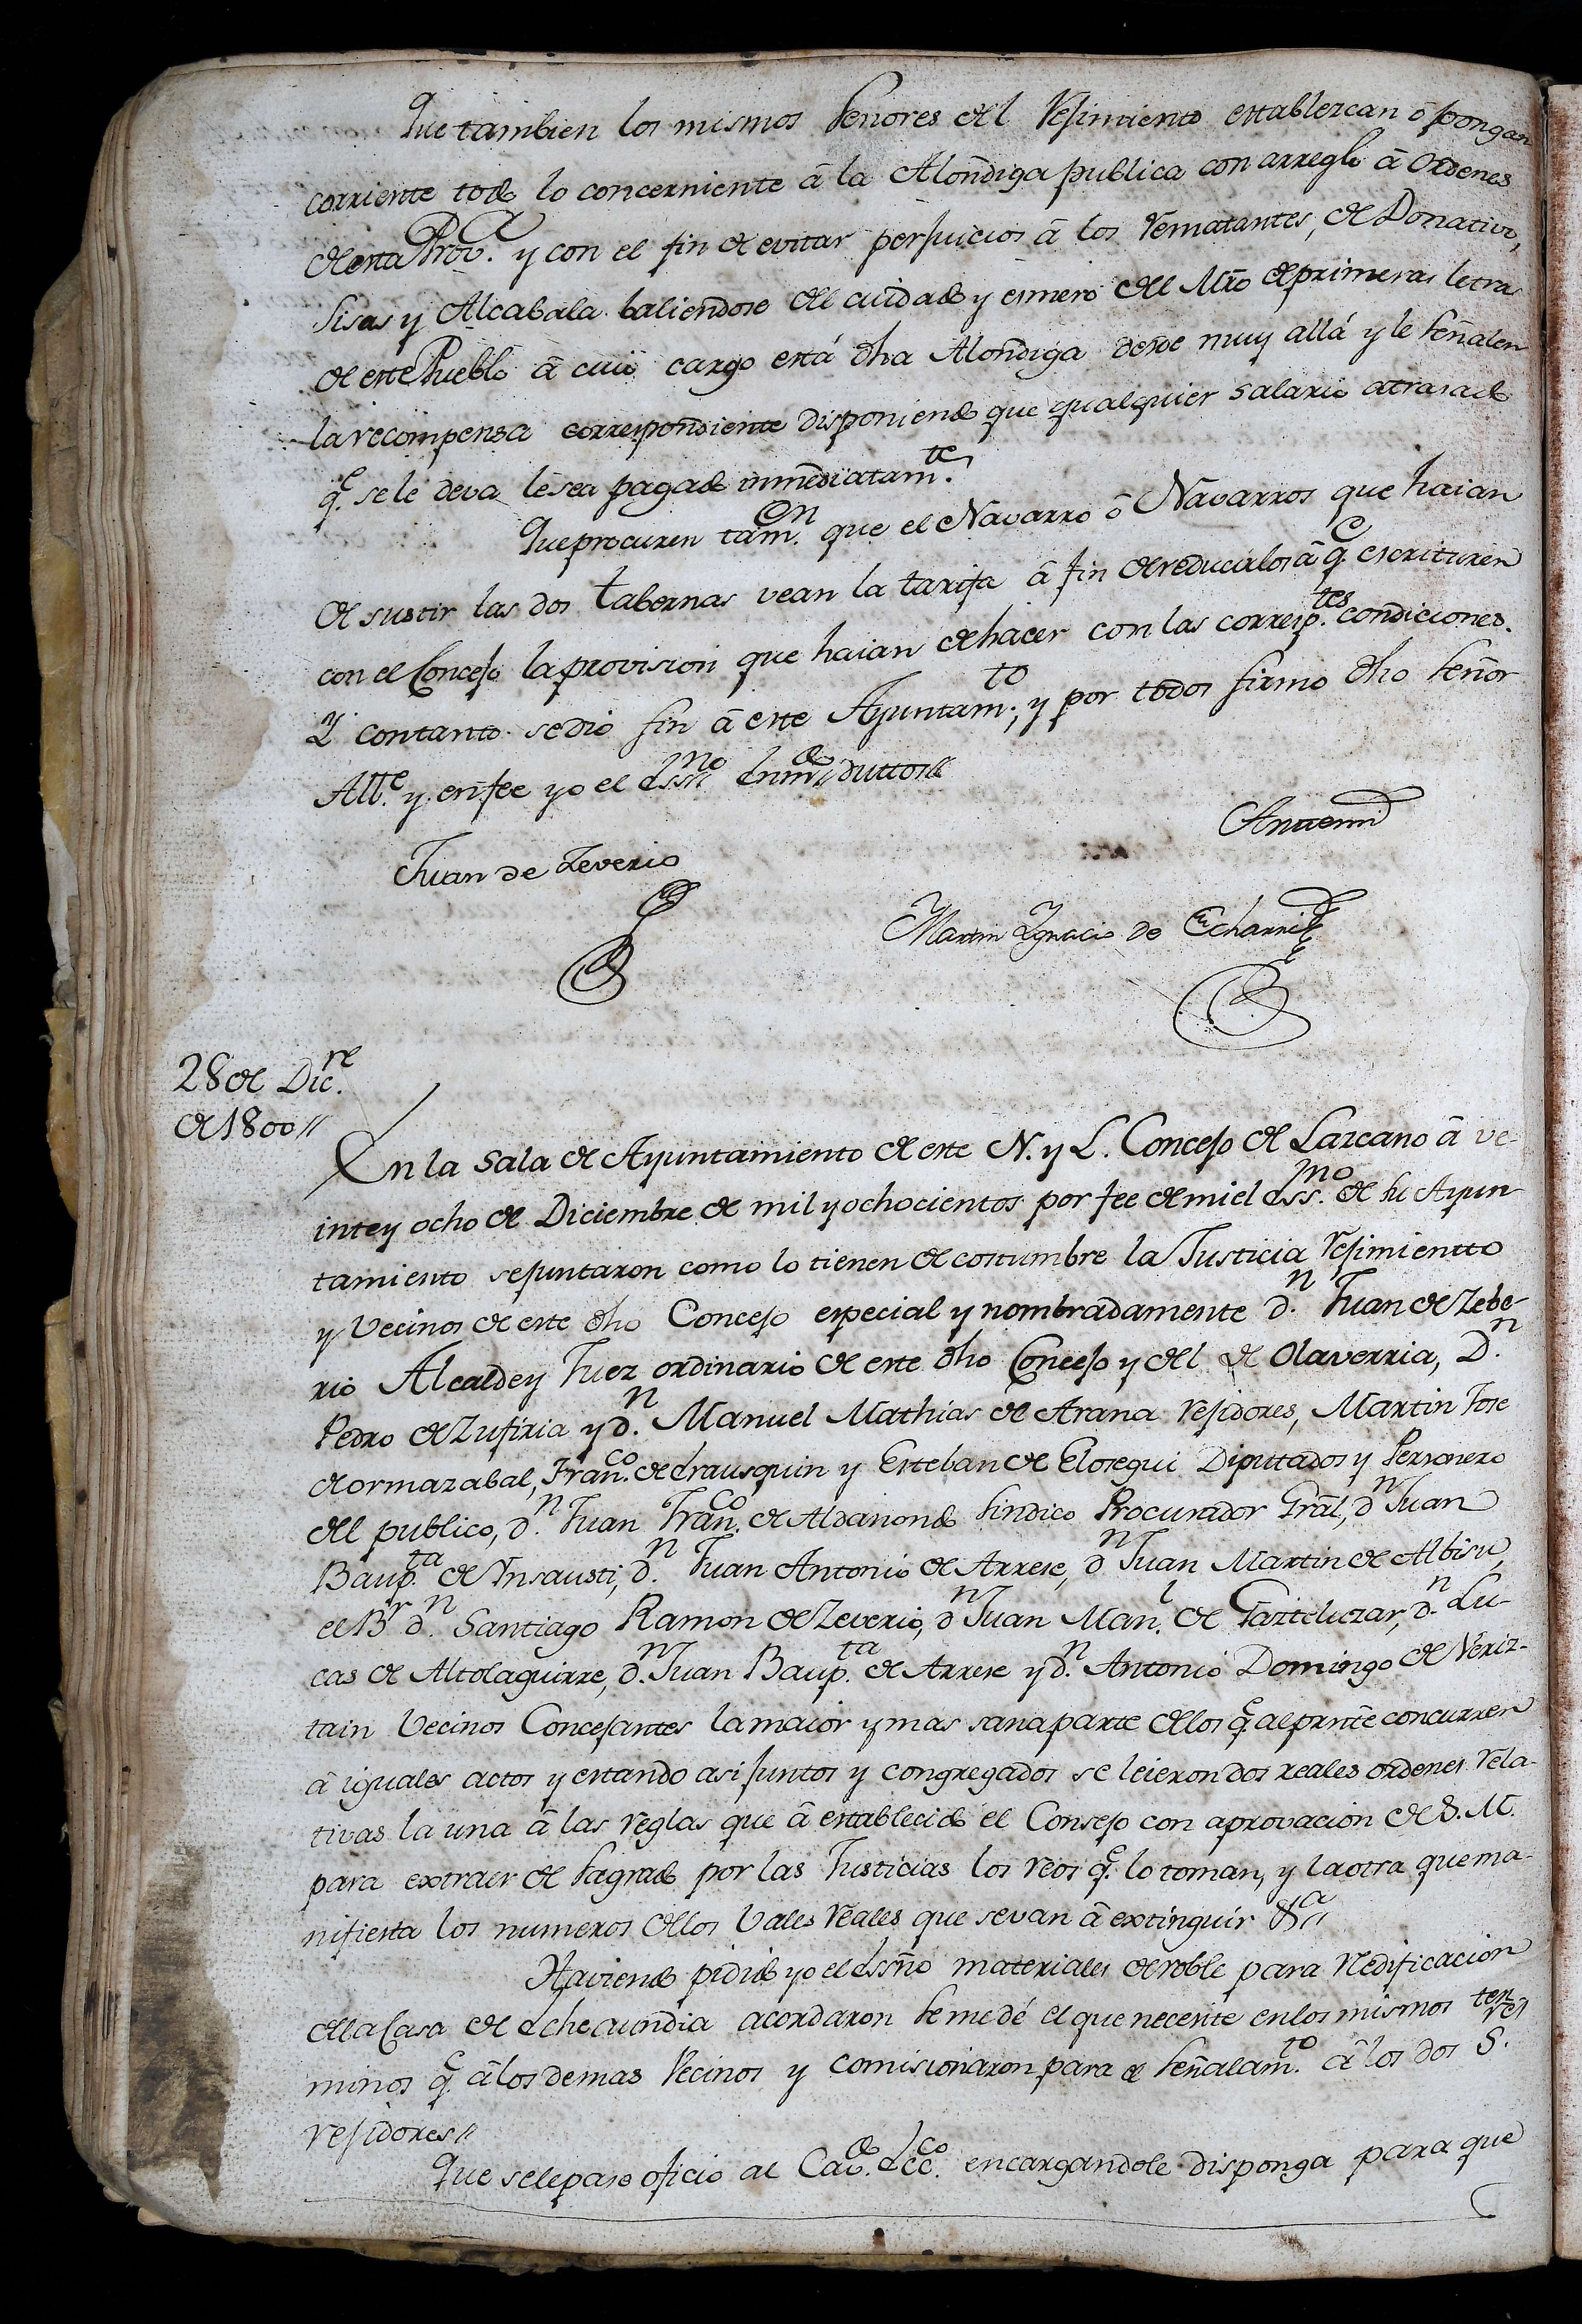 Que tambien los mismos Señores del Rejimiento establezcan ó pongan
corriente todo lo concerniente â la Alondiga publica con arreglo â Ordenes
de esta Prov.ª y con el fin de evitar perjuicios â los Rematantes, de Donativo,
Sisas y Alcabala baliendose del cuidado y esmero del Mrõ de primeras letras
de este Pueblo â cuio cargo está dha Alondiga desde muy allá y le señalen
la recompensa correspondiente disponiendo que qualquier salario atrasado
q.e se le deva le sea pagado inmediatam.te
Que procuren tam.en que el Navarro ô Navarros que haian
de sustir las dos tabernas vean la tarifa â fin de reducalos â q.e escrituren
con el Concejo la provision que haian de hacer con las corresp.tes condiciones.
Y contanto se dió fin â este Ayuntam.to, y por todos firmó dho Señor
Alt.e y en fee yo el Ess.no
Juan de Zeverio
Antemi
Martin Ygnacio de Echarri
28 de Dic.re
de 1800//
En la Sala de Ayuntamiento de este N. y L. Concejo de Lazcano â ve-
inte y ocho de Diciembre de mil y ochocientos por fee de mi el Ess.no de su Ayun
tamiento se juntaron como lo tienen de costumbre la Justicia Rejimientto
y Vecinos de este dho Concejo especial y nombradamente d.n Juan de Zebe-
rio Alcalde y Juez ordinario de este dho Concejo y del de Olaverria, D.n
Pedro de Zufiria y d.n Manuel Mathias de Arana Rejidores, Martin Jose
de ormazabal, Fran.co de Erausquin y Esteban de Elosegui Diputados y Personero
del publico, d.n Juan Fran.co de Aldanondo Sindico Procurador Grãl, d.n Juan
Baup.ta de Ynsausti, d.n Juan Antonio de Arrese, d.n Juan Martin de Albisu,
el B.r d.n Santiago Ramon de Zeverio, d.n Juan Man.l de Gaztelutzar, d.n Lu-
cas de Altolaguirre, d.n Juan Baup.ta de Arrese y d.n Antonio Domingo de Veriz-
tain Vecinos Concejantes la maior y mas sana parte de los q.e al prnte concurren
â iguales actos y estando asi juntos y congregados se leieron dos reales ordenes rela-
tivas la una â las reglas que â establecido el Consejo con aprovacion de S. M.
para extraer de Sagrado por las Justicias los reos q.e lo toman, y la otra que ma-
nifiesta los numeros de los Vales Reales que se van â extinguir &.a//
Haviendo pidido yo el Essño materiales de roble para Redificacion
de la Casa de Echecundia acordaron se me dé el que necente en los mismos ter-
minos q.e â los demas Vecinos y comisionaron para el señalam.to â los dos S.res
rejidores//
Que se le pase oficio al Cav.do Ecc.co encargandole disponga para que